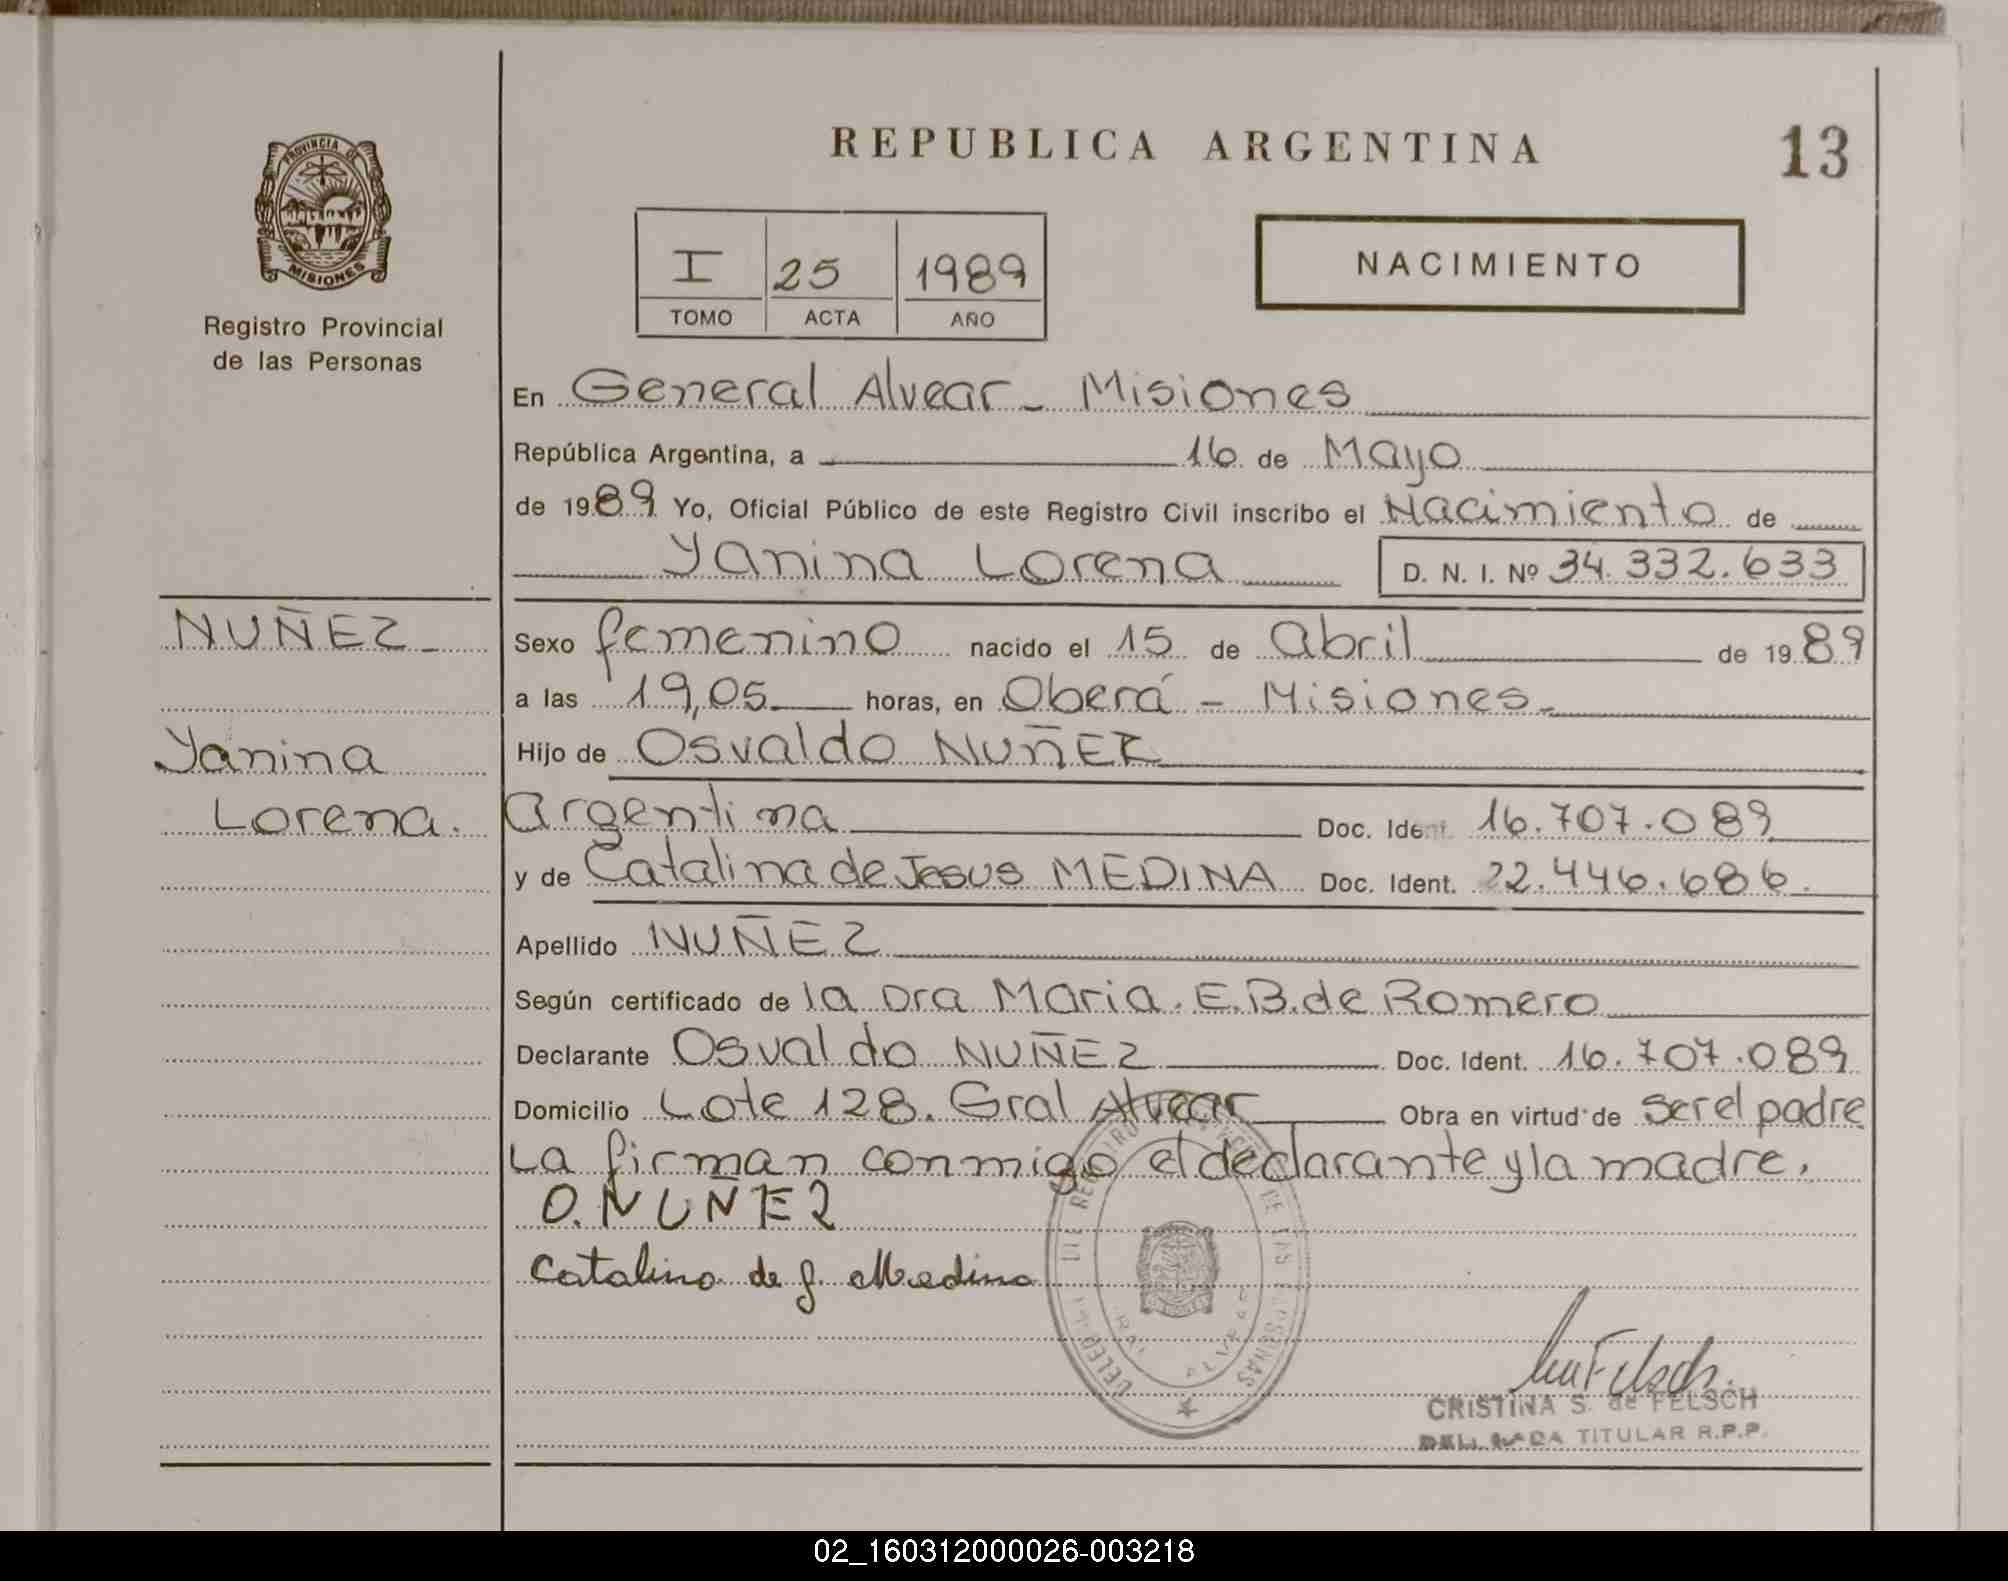 PROVINCIA DE
MISIONES
Registro Provincial
de las Personas
REPUBLICA ARGENTINA
13
I 25 1989
TOMO ACTA AÑO
NACIMIENTO
En General Alvear - Misiones
República Argentina, a 16 de Mayo
de 1989 Yo, Oficial Público de este Registro Civil inscribo el Nacimiento de
Yanina Lorena D. N. I. Nº 34.332.633
NUÑEZ
Yanina
Lorena.
Sexo femenino nacido el 15 de abril de 1989
a las 19,05 horas, en Oberá - Misiones
Hijo de Osvaldo NUÑEZ
argentina Doc. Ident. 16.707.089
y de Catalina de Jesus MEDINA Doc. Ident. 22.446.686.
Apellido NUÑEZ
Según certificado de la Dra Maria. E.B. de Romero
Declarante Osvaldo NUÑEZ Doc. Ident. 16.707.089
Domicilio Lote 128. Gral Alvear Obra en virtud de ser el padre
La firman conmigo el declarante y la madre.
O. NUÑEZ
Catalina de J. Medina
CRISTINA S. de FELSCH
DELEGADA TITULAR R.P.P.
02_160312000026-003218